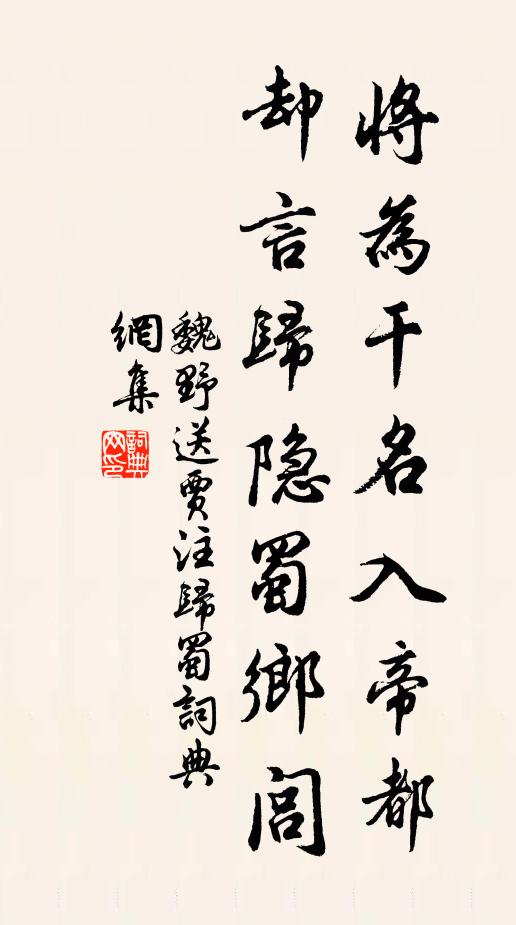 將為干名入帝都
却言歸隐蜀鄉閭
魏野送賈注歸蜀詞典
網集
詞典網印